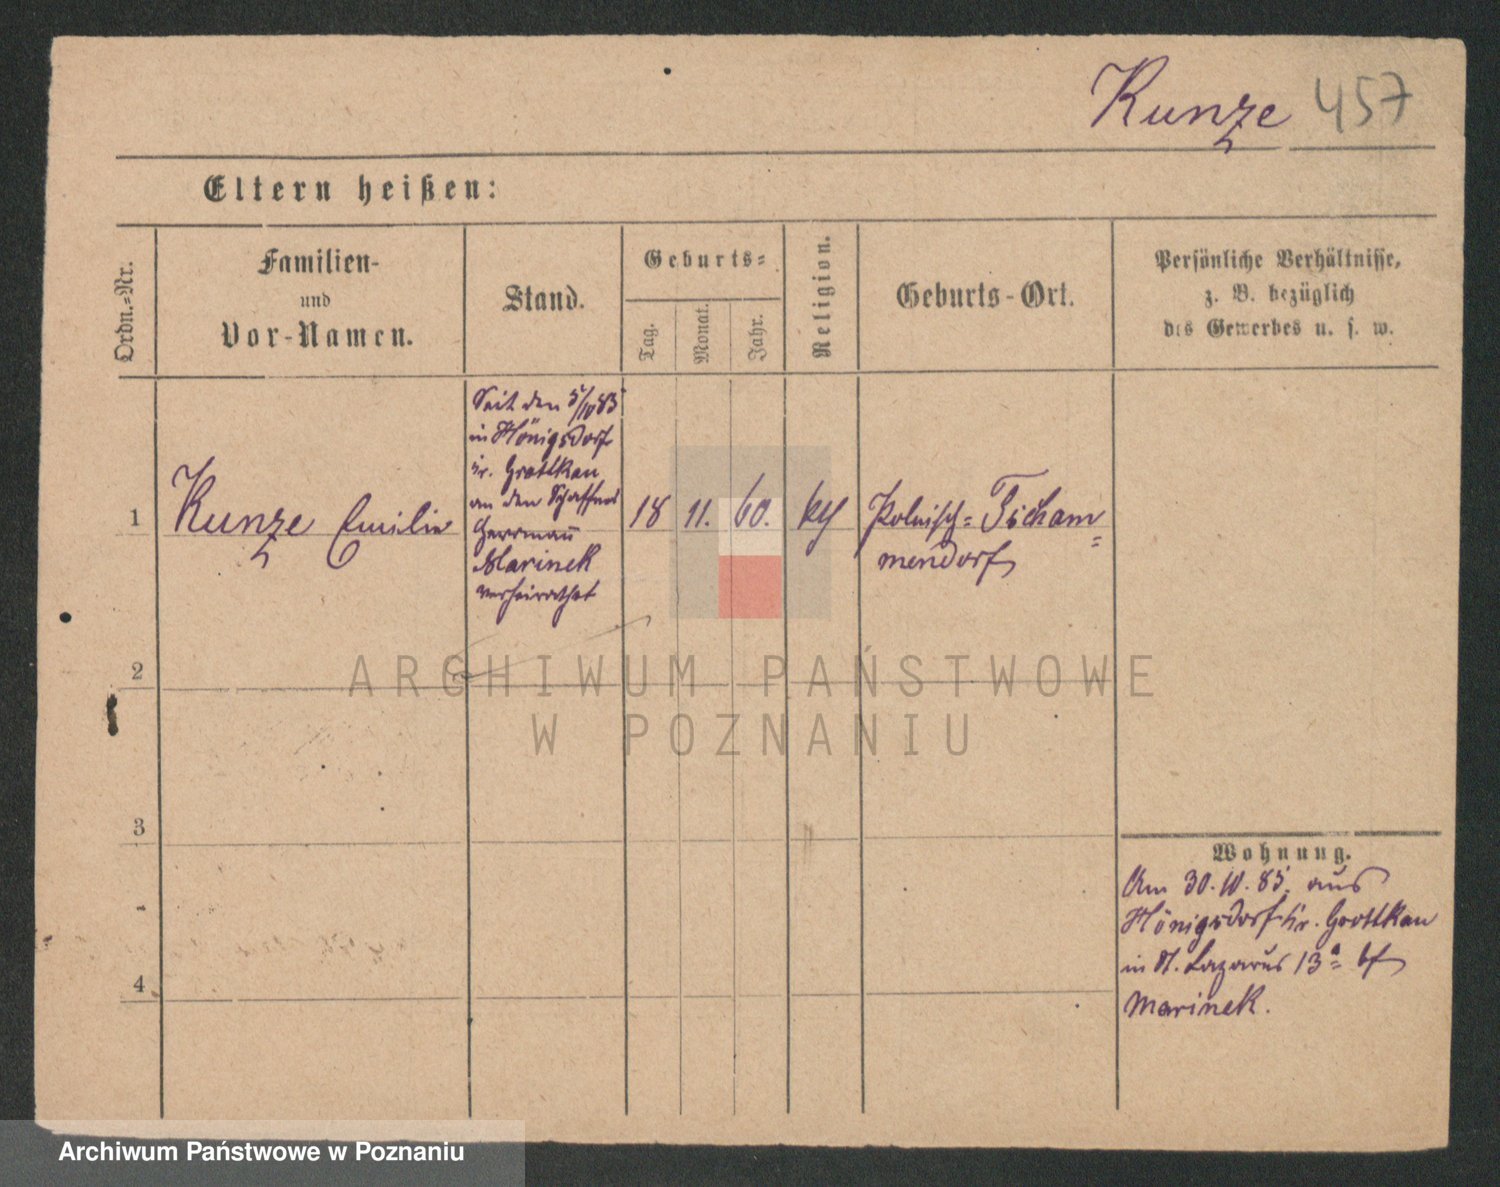 Kunze 457
Eltern heißen:
Ordn.-Nr.
Familien-
und
Vor-Namen.
Stand.
Geburts-
Tag.
Monat.
Jahr.
Religion.
Geburts-Ort.
Persönliche Verhältnisse,
z. B. bezüglich
des Gewerbes u. s. w.
1
Kunze Emilie
Seit den 5/10 85
in Hönigsdorf
Kr. Grottkau
an den Schaffner
Herrmann
Marinek
verheirathet
18
11.
60.
Polnisch-Tscham-
mendorf
2
3
4
Wohnung.
Am 30.10.85. aus
Hönigsdorf Kr. Grottkau
in St. Lazarus 13a bf
Marinek.
ARCHIWUM PAŃSTWOWE
W POZNANIU
Archiwum Państwowe w Poznaniu